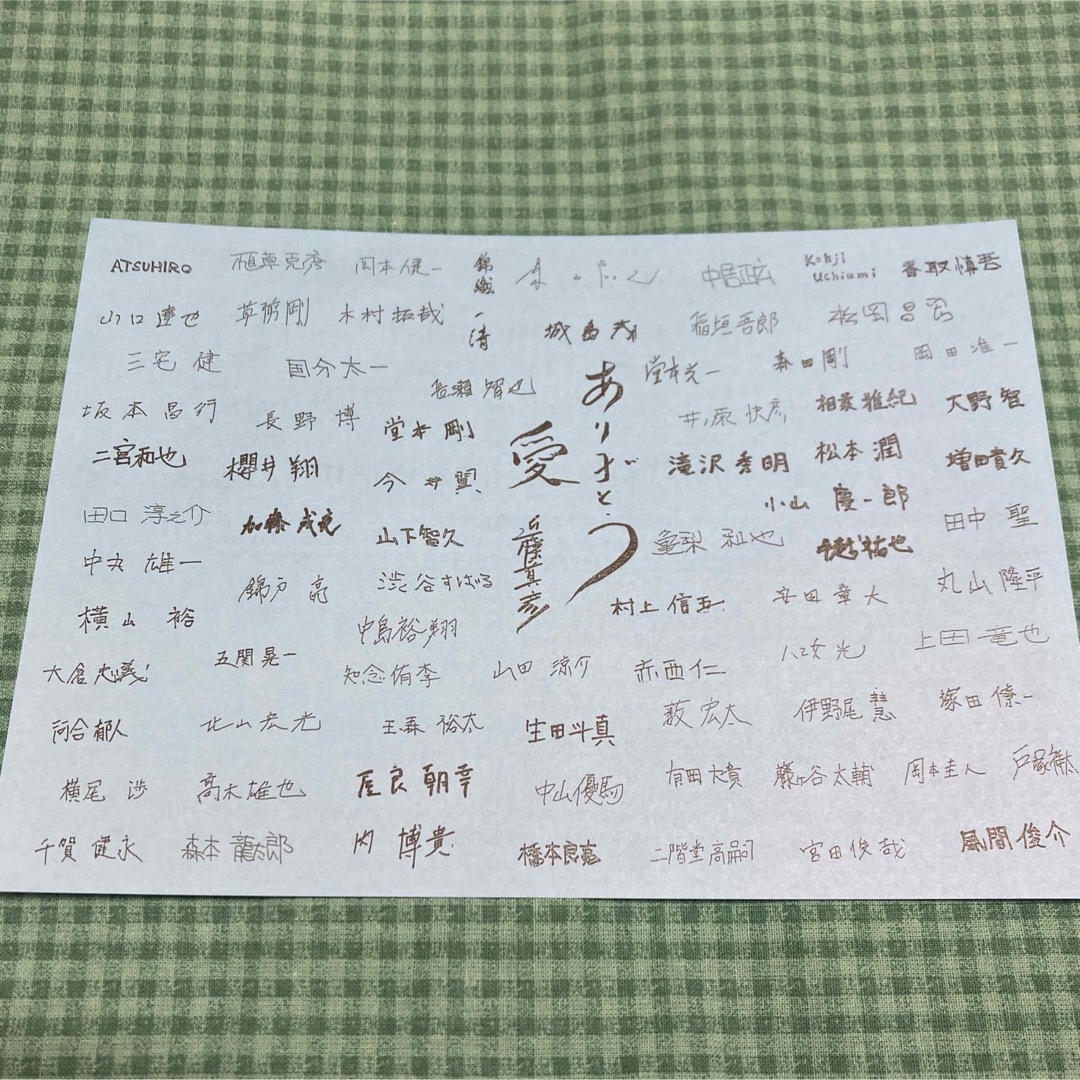 ATSUHIRO
植草克彦
岡本健一
錦織一清
中居正広
Kohji Uchiumi
香取慎吾
山口達也
草彅剛
木村拓哉
城島茂
稲垣吾郎
松岡昌宏
三宅健
国分太一
長瀬智也
堂本光一
森田剛
岡田准一
坂本昌行
長野博
堂本剛
ありがとう
愛
近藤真彦
井ノ原快彦
相葉雅紀
大野智
二宮和也
櫻井翔
今井翼
滝沢秀明
松本潤
増田貴久
田口淳之介
加藤成亮
山下智久
小山慶一郎
田中聖
中丸雄一
錦戸亮
渋谷すばる
亀梨和也
手越祐也
横山裕
中島裕翔
村上信五
安田章大
丸山隆平
大倉忠義
五関晃一
知念侑李
山田涼介
赤西仁
八乙女光
上田竜也
河合郁人
北山宏光
玉森裕太
生田斗真
薮宏太
伊野尾慧
塚田僚一
横尾渉
髙木雄也
屋良朝幸
中山優馬
有岡大貴
藤ヶ谷太輔
岡本圭人
戸塚祥太
千賀健永
森本龍太郎
内博貴
橋本良亮
二階堂高嗣
宮田俊哉
風間俊介